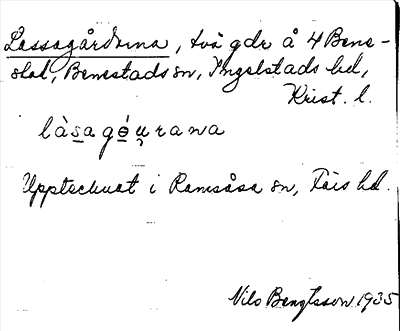 Lassagårdarna, två gdr å 4 Bene-
stad, Benestads sn, Ingelstads hd,
Krist. l.
làsagóu̯rana
Upptecknat i Ramsåsa sn, Färs hd.
Nils Bengtsson 1935